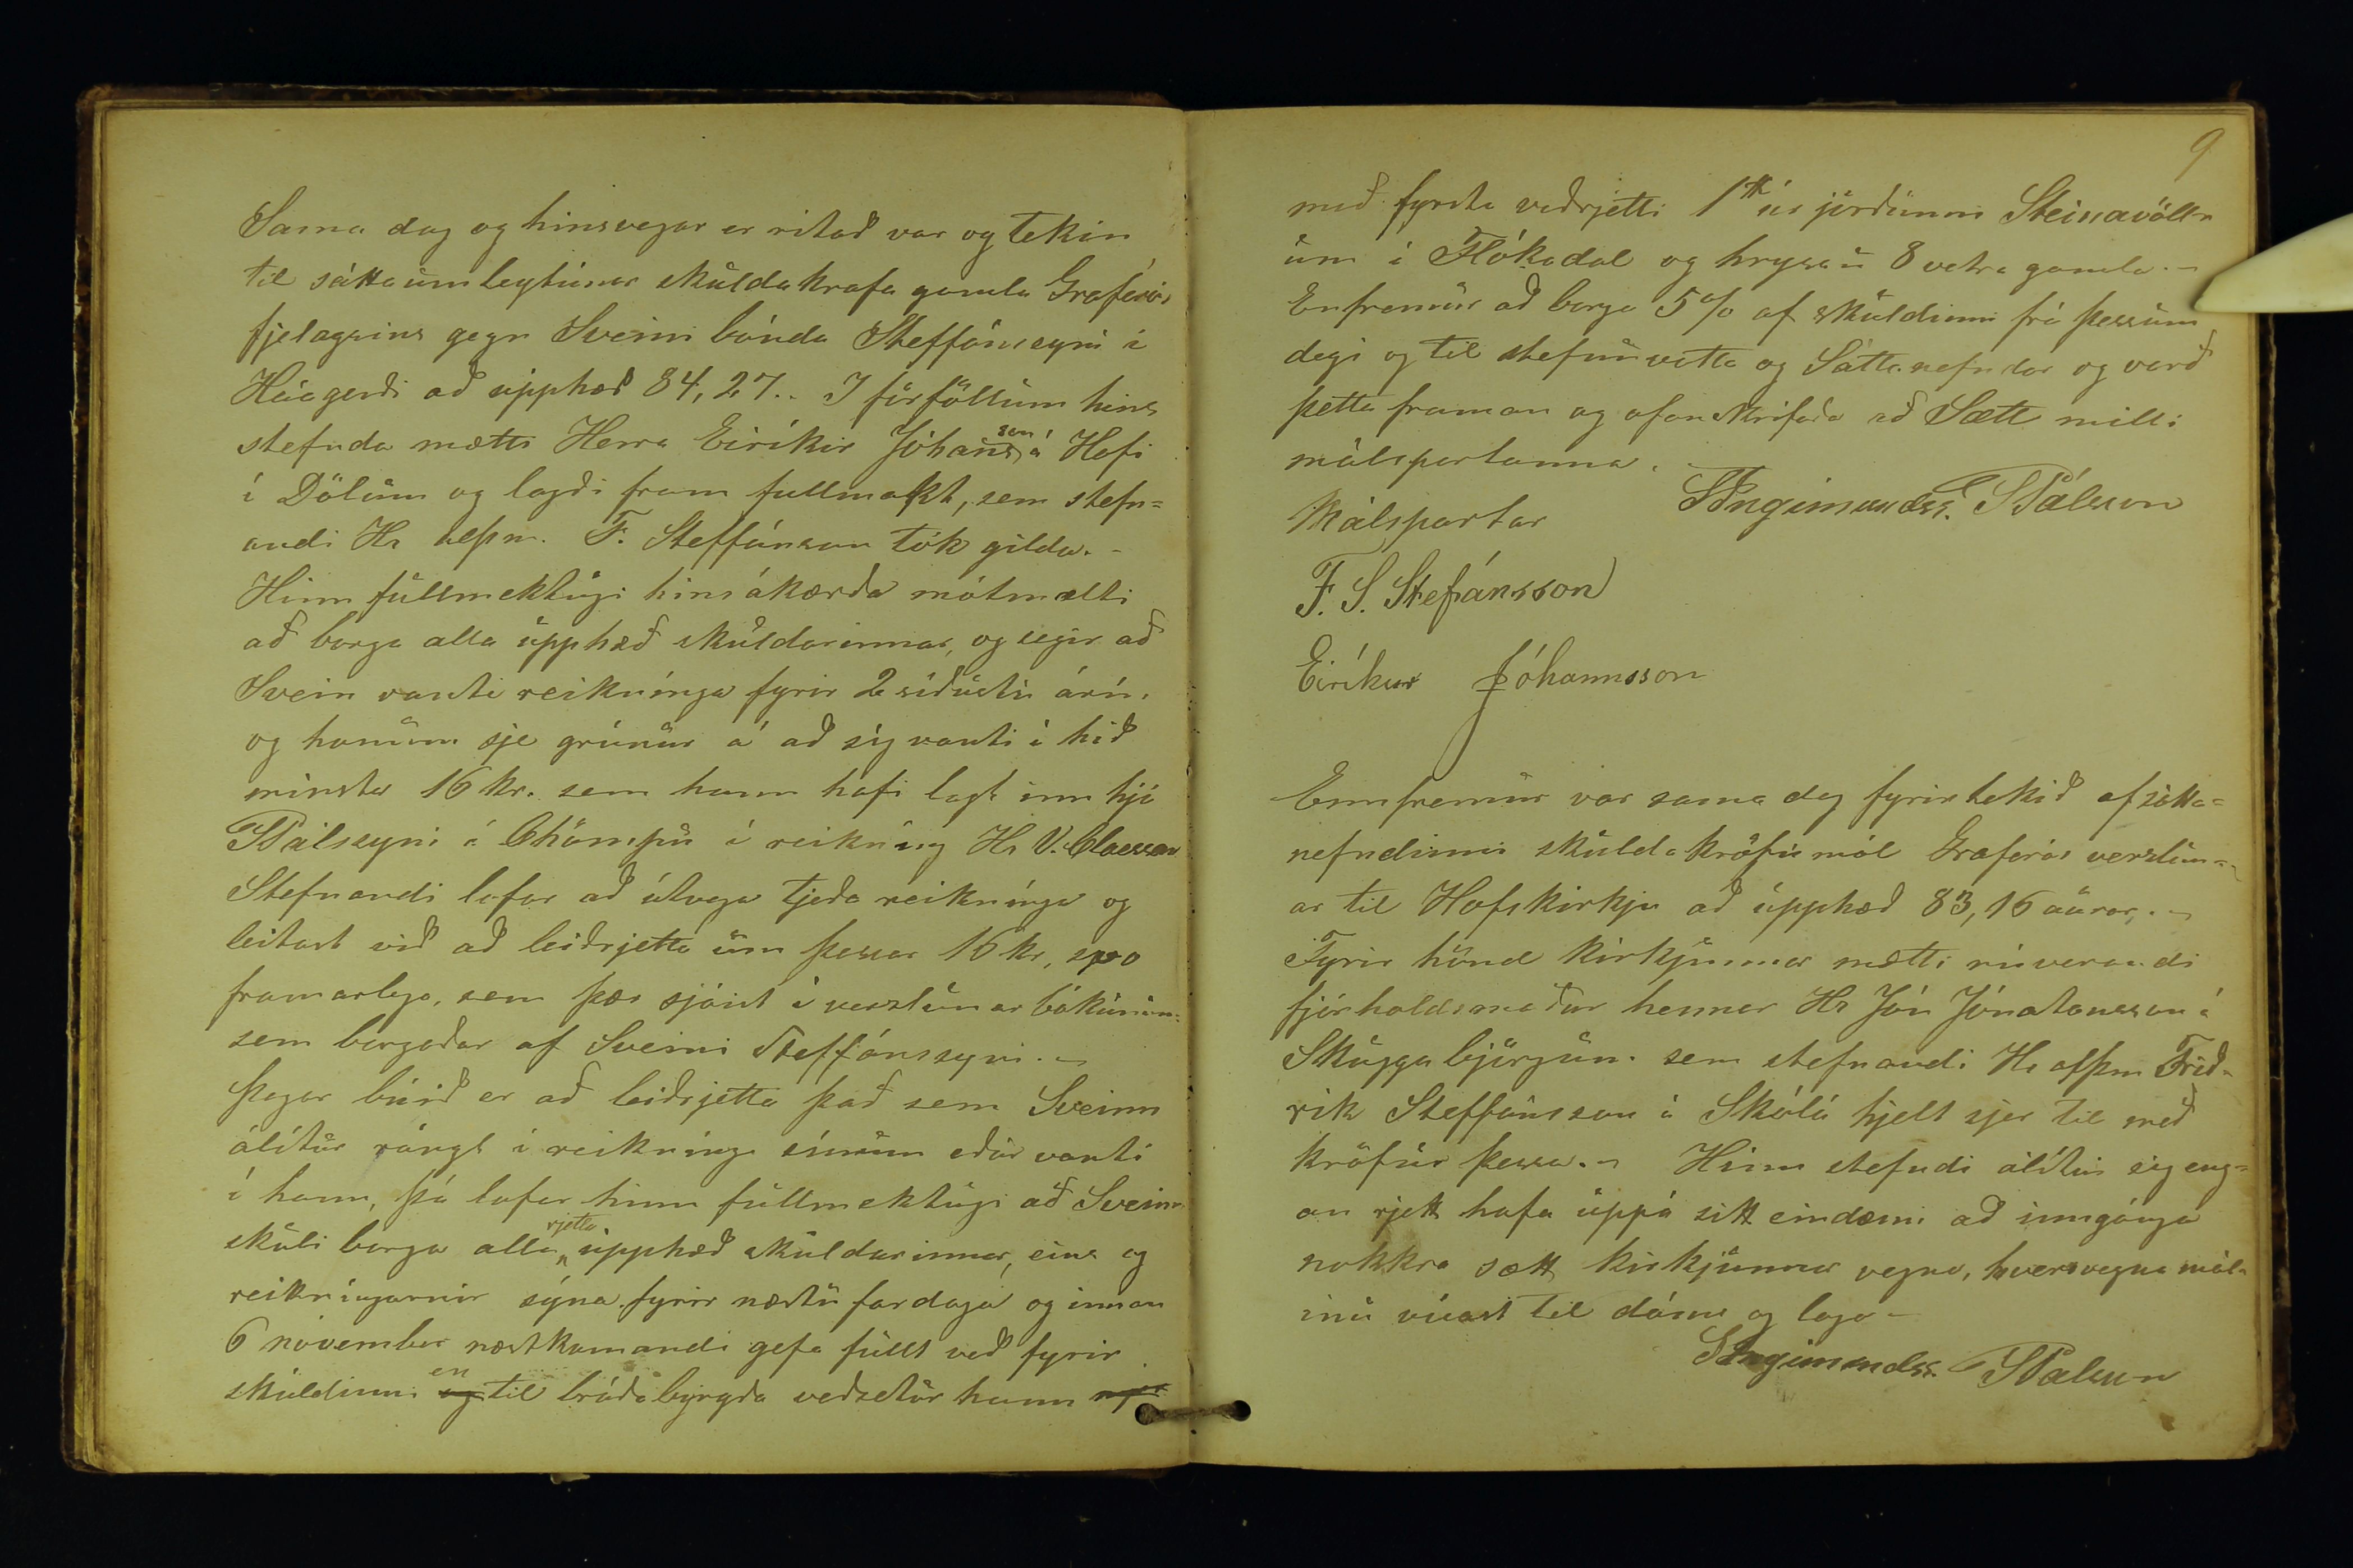 Sama dag og hinsvegar er ritað var og tekin
til sáttaumleytunar skuldakrafa gamla Grafarós
fjelagsins gegn Sveini bónda Steffánssyni í
Háagerði að upphæð 84,27.. I forföllum hins
stefnda mætti Herra Eiríkir Jóhansson á Hofi
í Dölum og lagði fram fullmakt, sem stefn=
andi Hr alþm. F. Steffánsson tók gilda. -
Hinn fullmektugi hins ákærða mótmælti
að borga alla upphæð skuldarinnar, og segir að
Svein vanti reiknínga fyrir 2 síðustu árin,
og honum sje grunur á að sig vanti í hið
minsta 16 kr. sem hann hafi lagt inn hjá
SPálssyni í  í reikning Hr V. Claessen
Stefnandi lofar að útvega tjeða reiknínga og
leitast við að leiðrjetta um þessar 16 kr, svo
framarlega, sem þær sjáist í verzlunar bókunum
sem borgaðar af Sveini Steffánssyni. -
Þegar búið er að leiðrjetta það sem Sveinn
álítur rángt í reikninga sínum eður vanti
í hann, þá lofar hinn fullmektugi að Sveinn
skuli borga alla rjetta upphæð skuldarinnar, eins og
reikningarnir sýna fyrir næstu fardaga og innan
6 november næstkomandi gefa fullt veð fyrir
skuldinni en til bráðabyrgða veðsetur hann
9
með fyrsta veðrjetti 1 úr jörðunni Steinavöll=
um í Flókadal og hryssu 8 vetra gamla. -
Enfremur að borga 5% af skuldinni frá þessum
degi og til stefnuvotta og Sáttanefndar og varð
þetta framan og ofanskrifaða að Sætt milli
málspartanna.
SIngimundss. SPálsson
Málspartar
F. S. Stefánsson
Eiríkur Jóhannsson
Ennfremur var sama dag fyrirtekið af sátta=
nefndinni skuldakröfumál Grafarós verzlun=
ar til Hofskirkju að upphæð 83,16 aurar. -
Fyrir hönd kirkjunnar mætti núverandi
fjárhaldsmaður hennar Hr Jón Jónatansson á
Skuggabjörgum sem stefnandi Hr alþm Frið=
rik Steffánsson á Skálá hjelt sjer til með
kröfur þessa. - Hinn stefndi álítur sig eng=
an rjett hafa uppá sitt eindæmi að inngánga
nokkra sætt kirkjunnar vegna, hversvegna mál=
inu vísast til dóms og laga -
SIngimundss. SPálsson